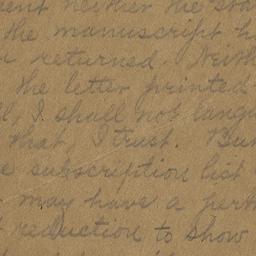 ent neither the sta
the manuscript h
returned. Neith
the letter printed
I shall not langu
that, I trust. But
e subscription list
may have a perh
reduction to show